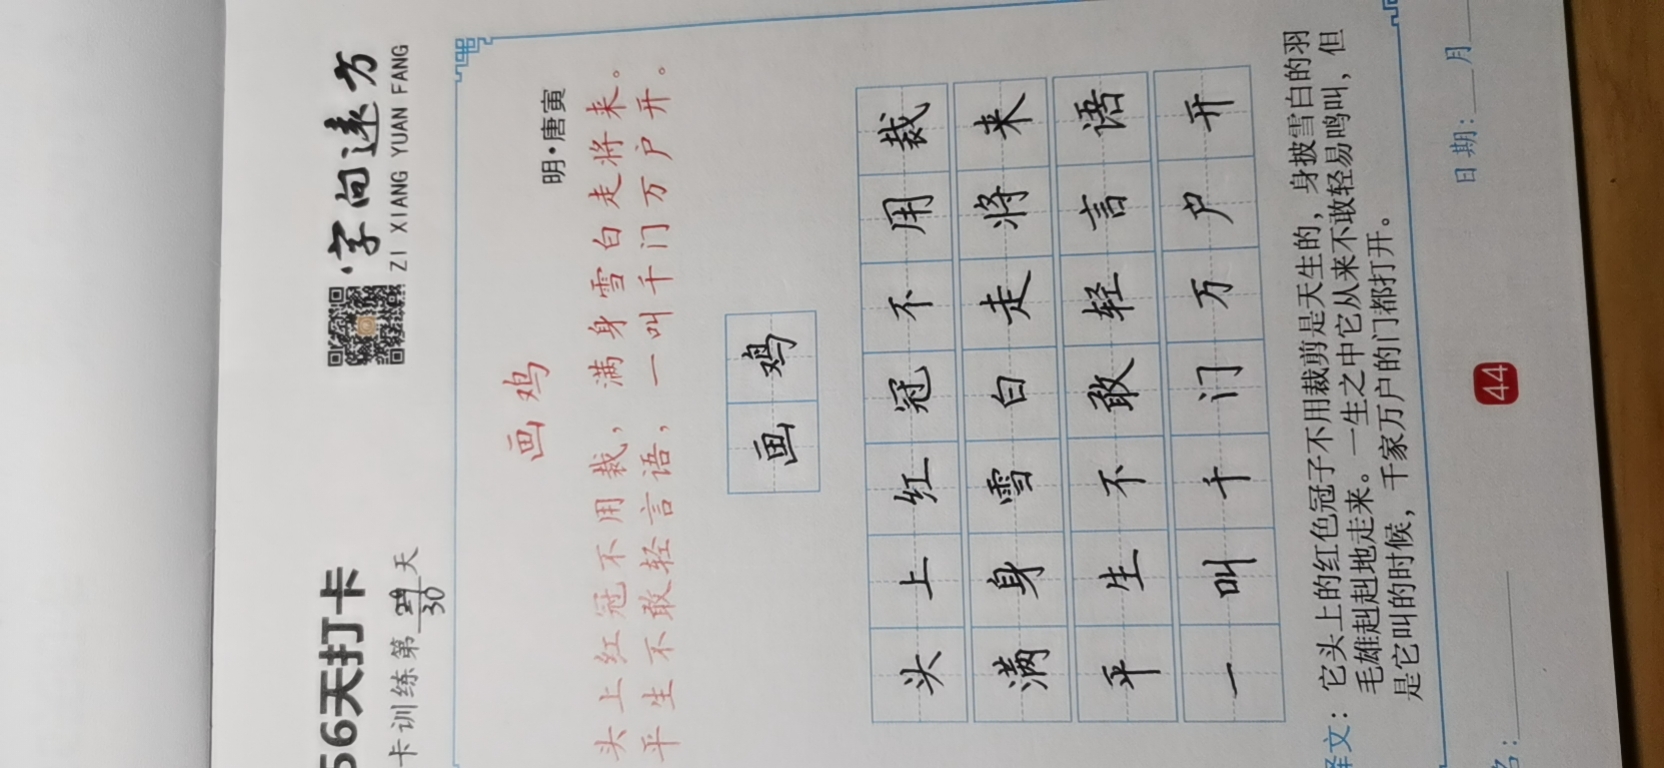 56天打卡
·字向远方
ZI XIANG YUAN FANG
卡训练第30天
画鸡
明·唐寅
头上红冠不用裁，满身雪白走将来。
平生不敢轻言语，一叫千门万户开。
画鸡
头上红冠不用裁
满身雪白走将来
平生不敢轻言语
一叫千门万户开
译文：它头上的红色冠子不用裁剪是天生的，身披雪白的羽
毛雄赳赳地走来。一生之中它从来不敢轻易鸣叫，但
是它叫的时候，千家万户的门都打开。
名：
44
日期：
月